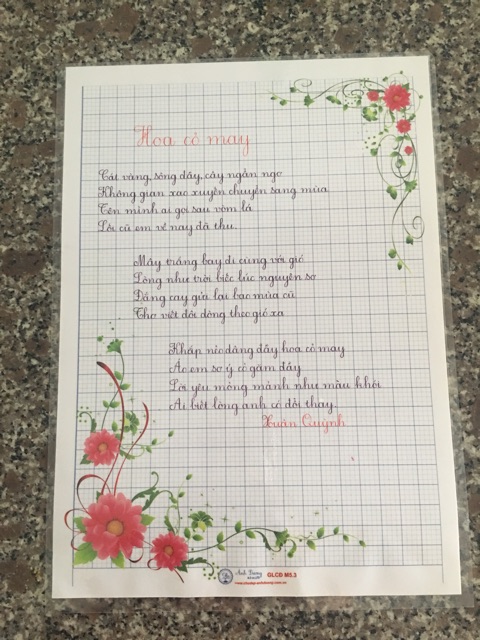 Hoa cỏ may
Cát vàng, sông đầy, cây ngẩn ngơ
Không gian xao xuyến chuyển sang mùa
Tên mình ai gọi sau vòm lá
Lối cũ em về nay đã thu.
Mây trắng bay đi cùng với gió
Lòng như trời biếc lúc nguyên sơ
Đắng cay gửi lại bao mùa cũ
Thơ viết đôi dòng theo gió xa
Khắp nẻo dâng đầy hoa cỏ may
Áo em sơ ý cỏ găm đầy
Lời yêu mỏng mảnh như màu khói
Ai biết lòng anh có đổi thay.
Xuân Quỳnh
Ánh Dương
GLCĐ M5.3